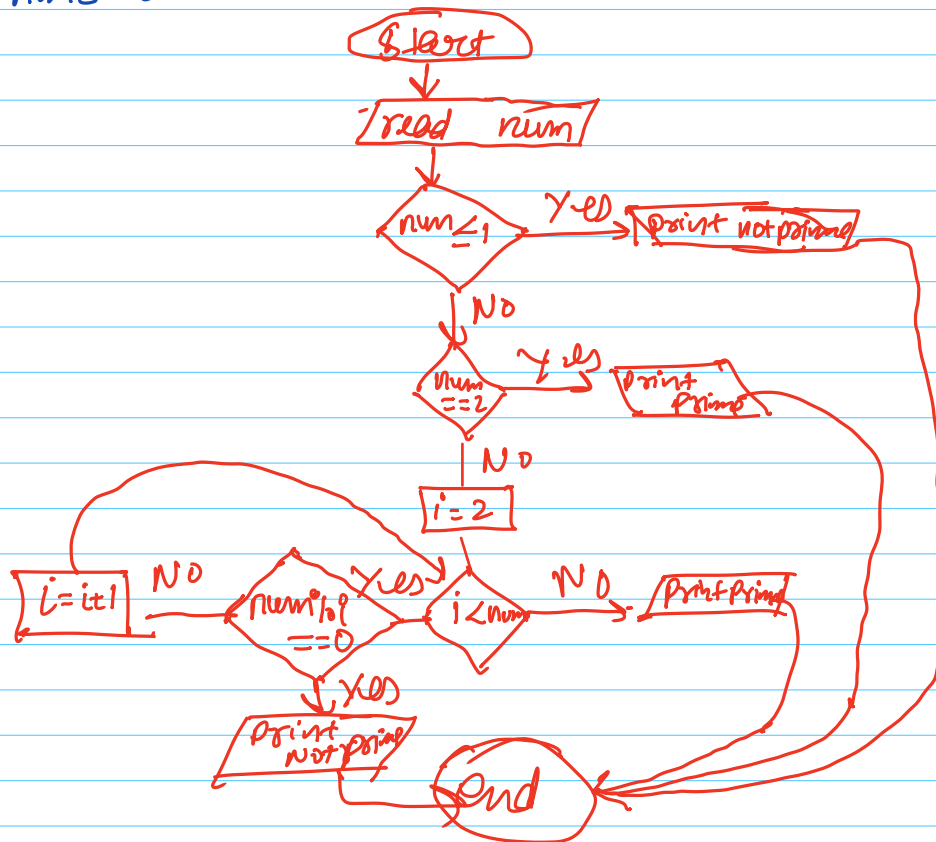 Start
read num
num ≤ 1
Yes
print not prime
NO
num
==2
Yes
print
prime
NO
i = 2
i < num
Yes
NO
print prime
num % i
==0
NO
i = i+1
Yes
print
Not prime
End